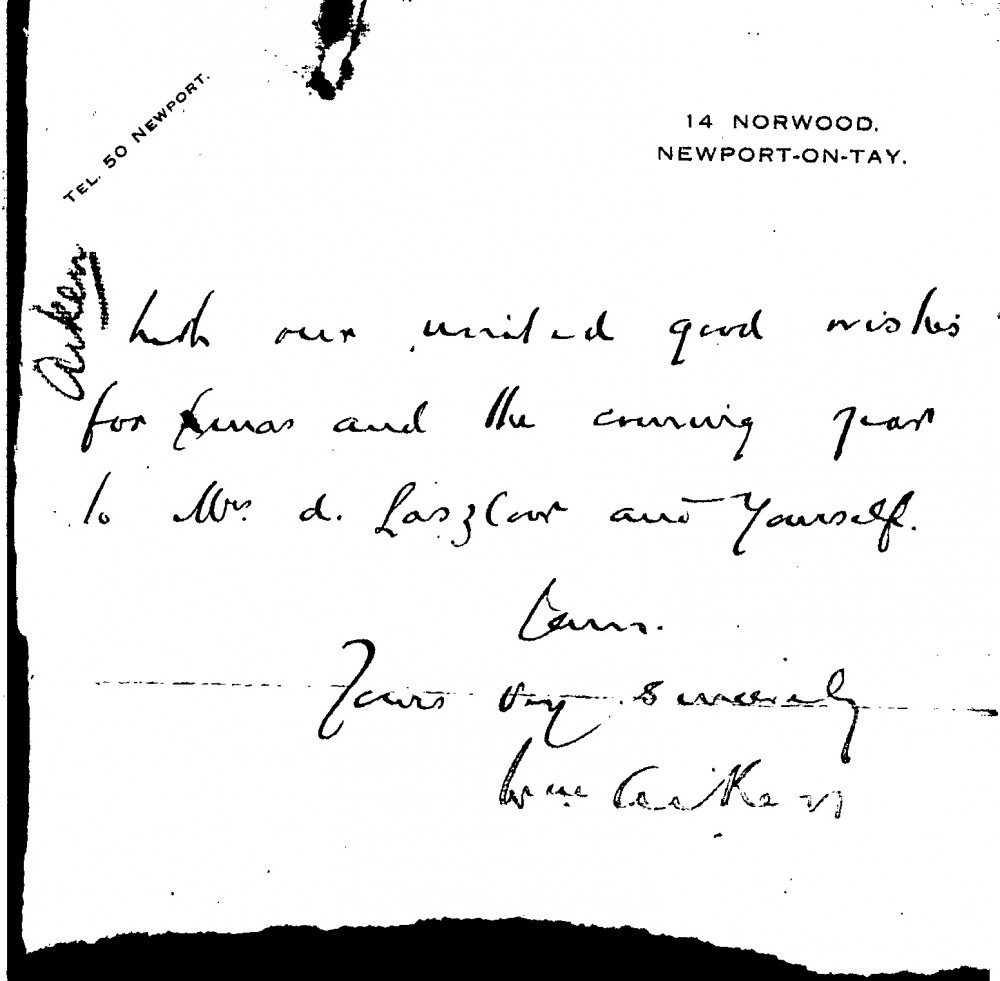 TEL. 50 NEWPORT.
14 NORWOOD.
NEWPORT-ON-TAY.
Aiken
With our united good wishes
for Xmas and the coming year
to Mrs. d. Laszlow and Yourself.
Yours very Sincerely
Wm Aiken